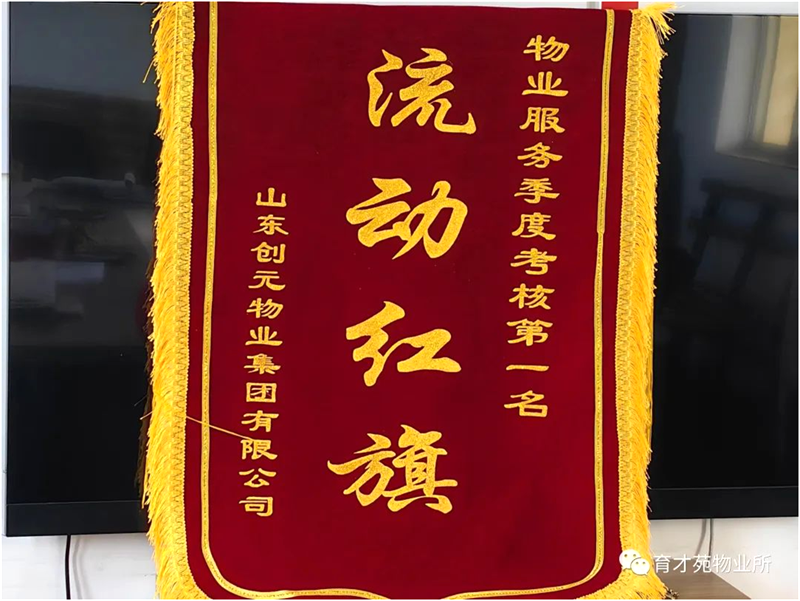 物业服务季度考核第一名
流动红旗
山东创元物业集团有限公司
育才苑物业所